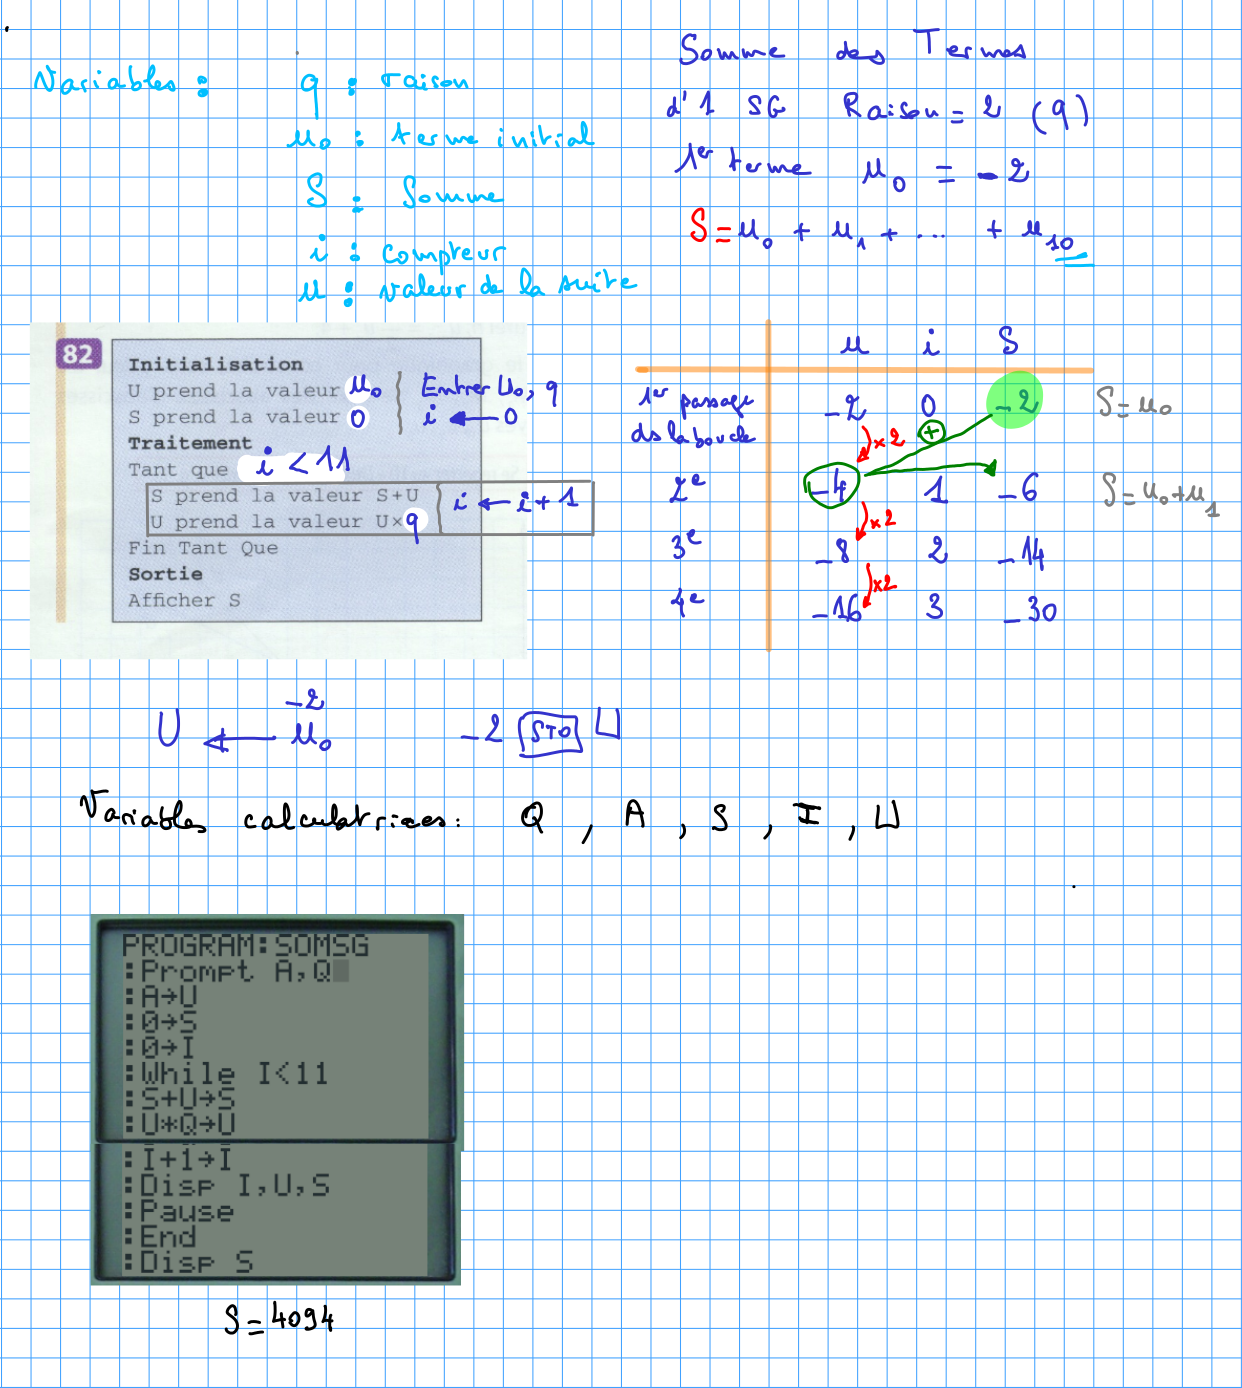 Variables : q : raison
u₀ : terme initial
S : Somme
i : compteur
u : valeur de la suite
Somme des Termes
d'1 SG Raison = 2 (q)
1er terme u₀ = -2
S = u₀ + u₁ + ... + u₁₀
82
Initialisation
U prend la valeur u₀ Entrer U₀, q
S prend la valeur 0 i ← 0
Traitement
Tant que i < 11
S prend la valeur S+U i ← i + 1
U prend la valeur U×q
Fin Tant Que
Sortie
Afficher S
u i S
1er passage -2 0 -2 S = u₀
ds la boucle
×2 +
2e -4 1 -6 S = u₀ + u₁
×2
3e -8 2 -14
×2
4e -16 3 -30
-2
U ← u₀ -2 STO U
Variables calculatrices : Q , A , S , I , U
PROGRAM:SOMSG
:Prompt A,Q
:A→U
:0→S
:0→I
:While I<11
:S+U→S
:U*Q→U
:I+1→I
:Disp I,U,S
:Pause
:End
:Disp S
S = 4094